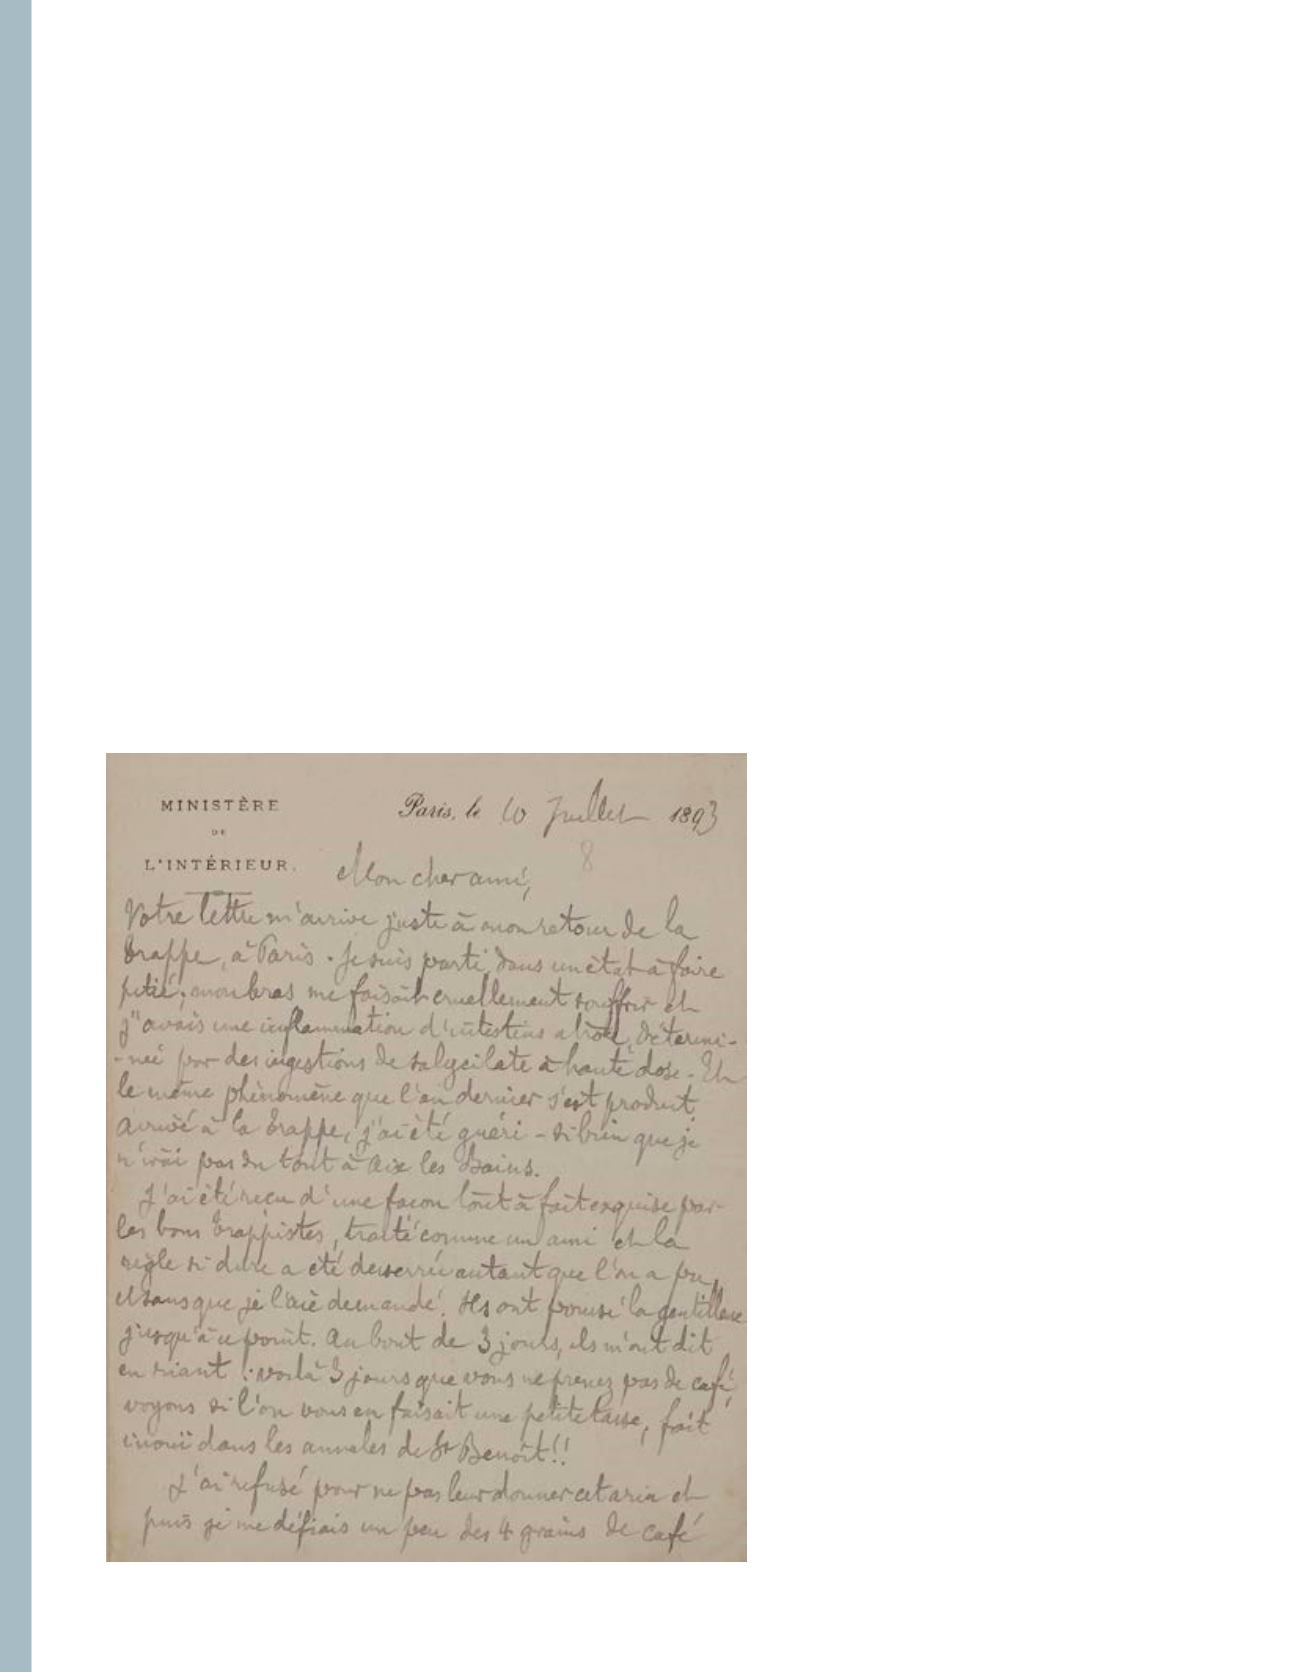 MINISTÈRE
DE
L'INTÉRIEUR.
Paris, le 10 Juillet 1893
8
Mon cher ami,
Votre lettre m'arrive juste à mon retour de la
Trappe, à Paris. Je suis parti dans un état à faire
pitié; mon bras me faisait cruellement souffrir et
j'avais une inflammation d'intestins atroce, détermi-
-née par des ingestions de salycilate à haute dose - Et
le même phénomène que l'an dernier s'est produit.
Arrivé à la Trappe, j'ai été guéri - si bien que je
n'irai pas du tout à Aix les Bains.
J'ai été reçu d'une façon tout à fait exquise par
les bons Trappistes, traité comme un ami et la
règle si dure a été desserrée autant que l'on a pu,
et sans que je l'aie demandé. Ils ont poussé la gentillesse
jusqu'à ce point. Au bout de 3 jours, ils m'ont dit
en riant : voilà 3 jours que vous ne prenez pas de café,
voyons si l'on vous en faisait une petite tasse, fait
inouï dans les annales de St Benoît!!
J'ai refusé pour ne pas leur donner cet aria et
puis je me défiais un peu des 4 grains de café